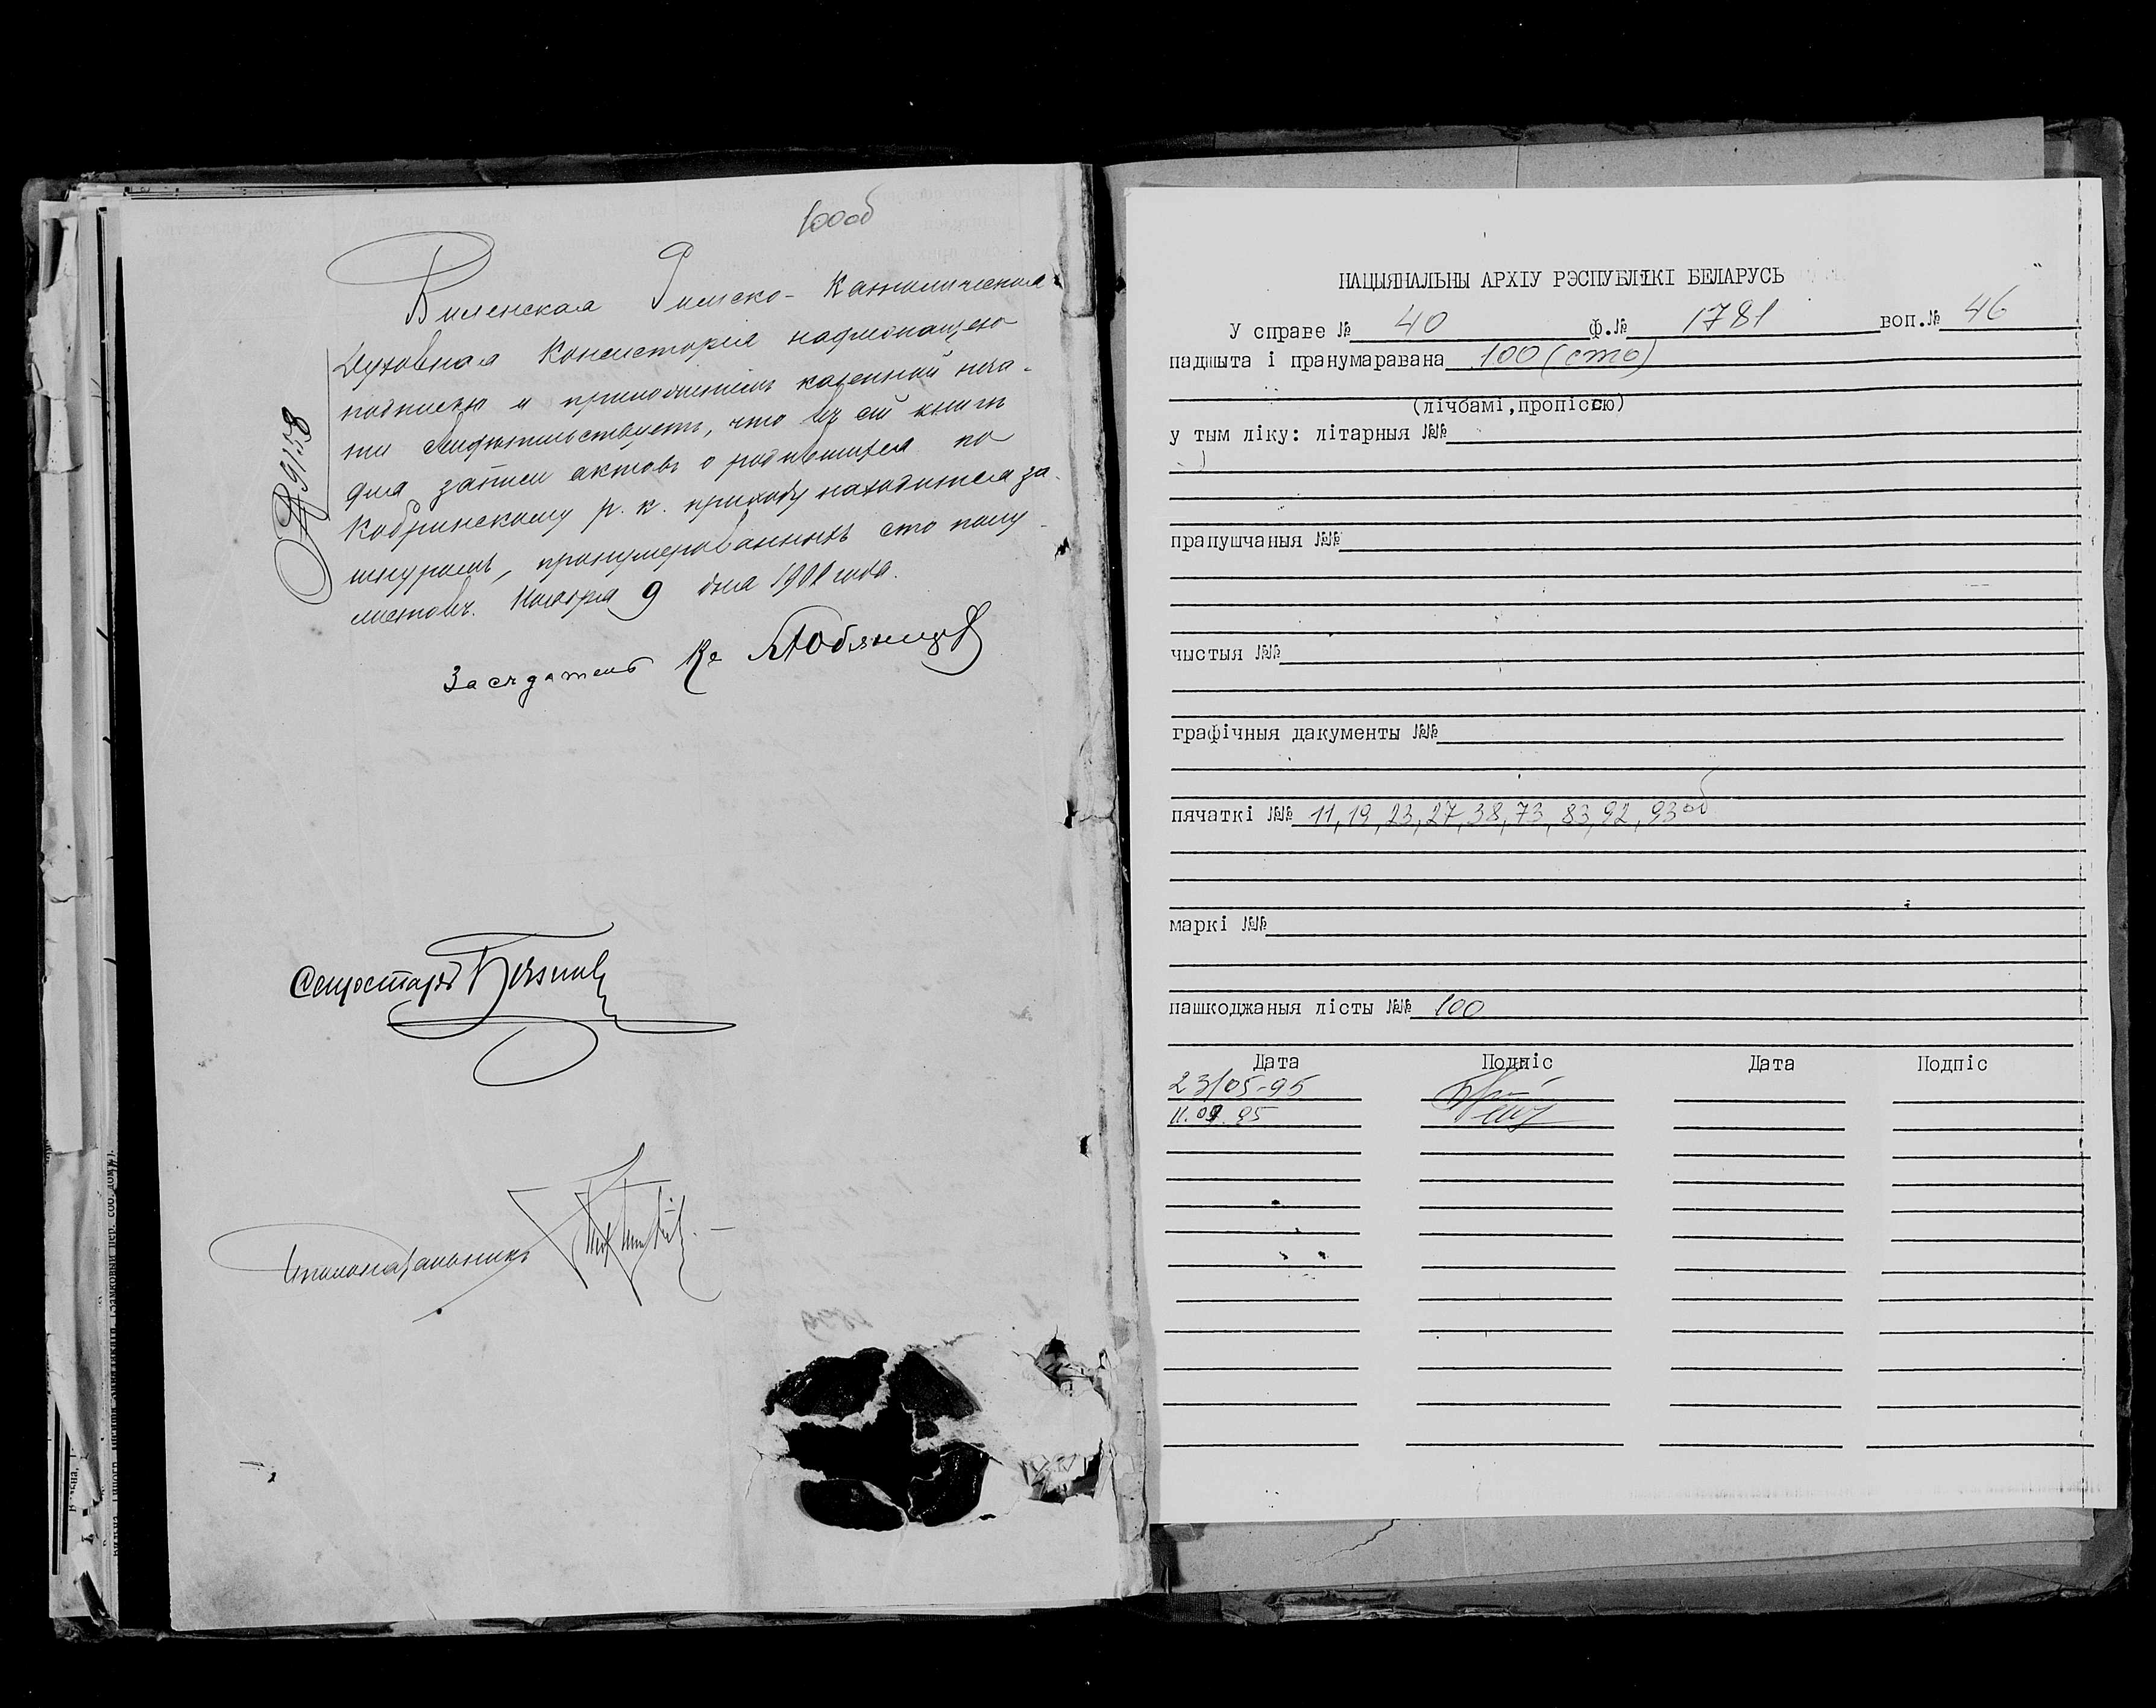 100об
Виленская Римско-Католическая
Духовная Консисторія надлежащею
подписью и приложеніемъ казенной печа-
ти свидѣтельствуетъ, что въ сей книгѣ
для записи актовъ о родившихся по
Кобринскому р. к. приходу находится за
шнуромъ, пронумерованныхъ сто полу-
листовъ. Ноября 9 дня 1900 года.
№ 9158
Засѣдатель Кс
Секретарь
Столоначальникъ
НАЦЫЯНАЛЬНЫ АРХІУ РЭСПУБЛІКІ БЕЛАРУСЬ
У справе № 40 ф.№ 1781 воп.№ 46
падшыта і пранумаравана 100 (сто)
(лічбамі, пропіссю)
у тым ліку: літарныя №№
прапушчаныя №№
чыстыя №№
графічныя дакументы №№
пячаткі №№ 11, 19, 23, 27, 38, 73, 83, 92, 93об
маркі №№
пашкоджаныя лісты №№ 100
Дата Подпіс Дата Подпіс
23/05-95
11.09.95